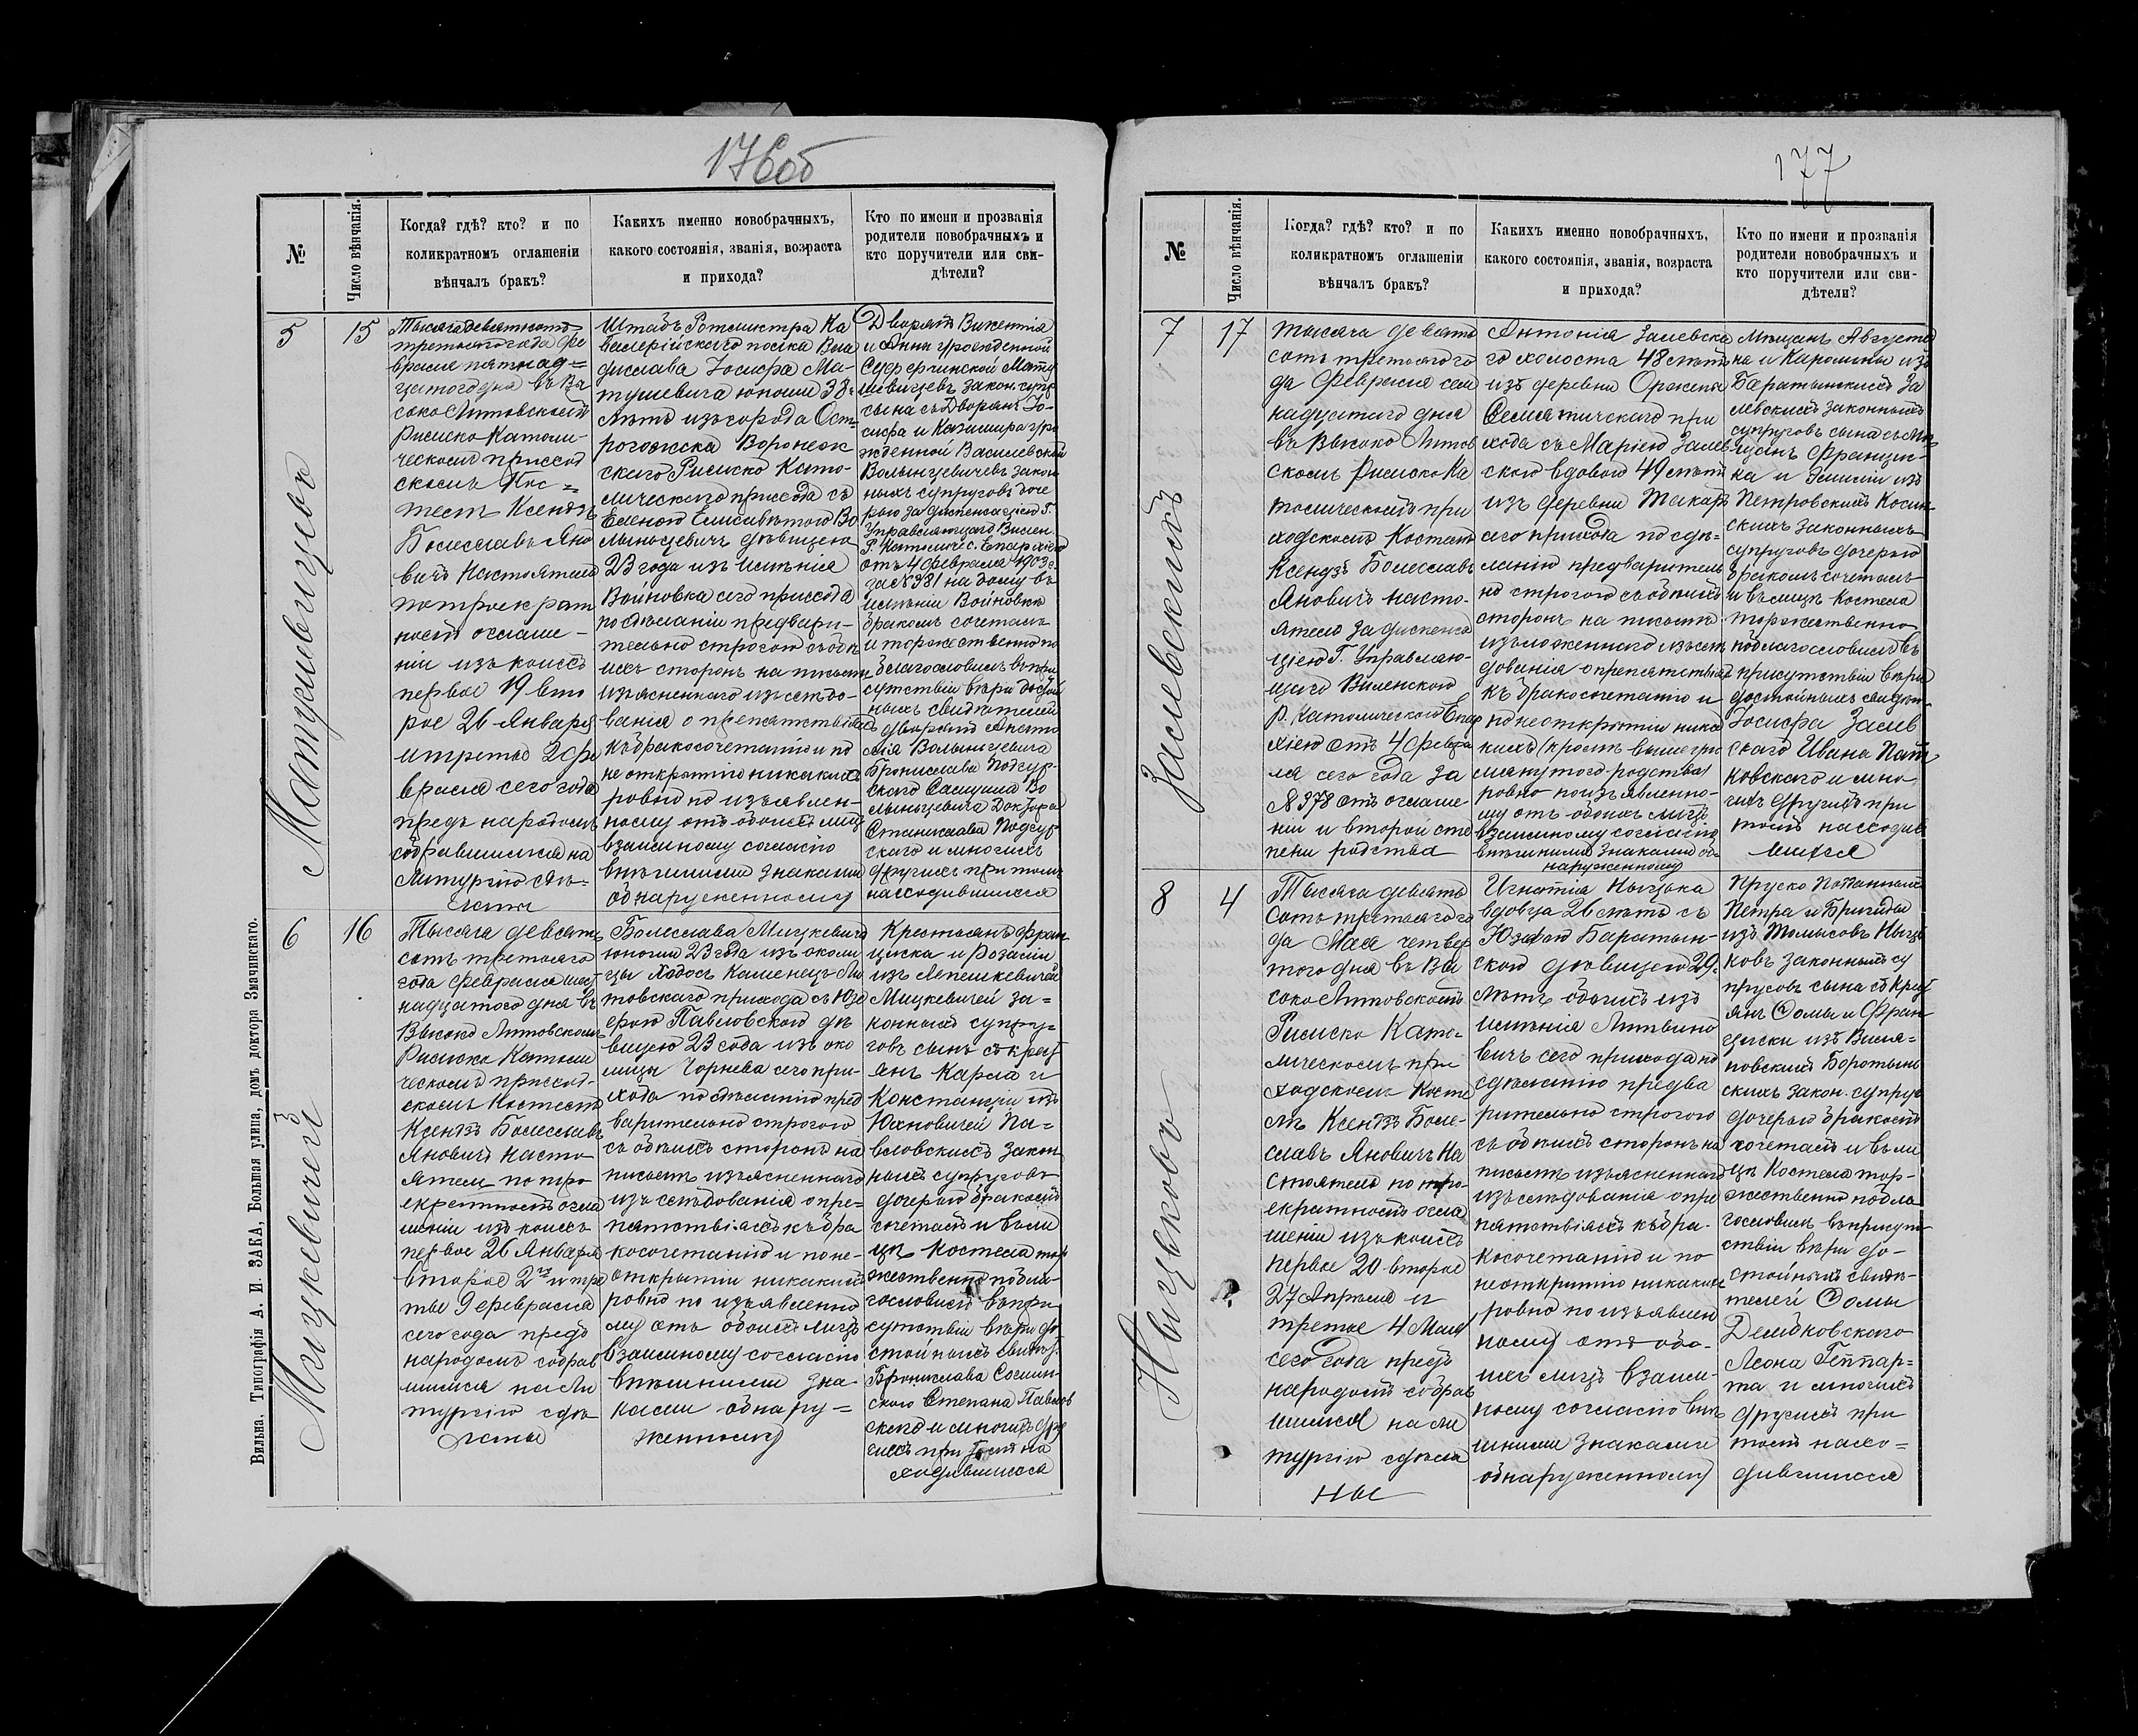 176об
№
Число вѣнчанія.
Когда? гдѣ? кто? и по
коликратномъ оглашеніи
вѣнчалъ бракъ?
Какихъ именно новобрачныхъ,
какого состоянія, званія, возраста
и прихода?
Кто по имени и прозванія
родители новобрачныхъ и
кто поручители или сви-
дѣтели?
5
15
Матушевичевъ
Тысяча девятьсотъ
третьяго года Фе
враля пятнад=
цатого дня въ Вы
соко Литовскомъ
Римско-Католи-
ческомъ приход
скомъ Кос=
телѣ Ксендзъ
Болеславъ Яно
вичъ Настоятель
по троекрат
номъ оглаше-
ніи изъ коихъ
первое 19 вто
рое 26 Января
и третье 2 Фе
враля сего года
предъ народомъ
собравшимся на
Литургію сдѣ=
ланы
Штабъ Ротмистра Ка
валерійскаго полка Вла
дислава Іосифа Ма-
тушевича юношу 38
лѣтъ изъ города Ост-
рогожска Воронеж
скаго Римско Като-
лическаго прихода съ
Еленою Елисаветою Во
лынцевичъ дѣвицею
23 года изъ имѣнія
Войновка сего прихода
по сдѣланіи предвари-
тельно строгого съ обѣ
ихъ сторонъ на письмѣ
изъясненнаго изслѣдо-
ванія о препятствіяхъ
къ бракосочетанію и по
не открытію никакихъ
ровно по изъявлен-
ному отъ обоихъ лицъ
взаимному согласію
внѣшними знаками
обнаруженному
Дворянъ Викентія
и Анны урожденной
Матушевичевъ закон. супр
сына съ Дворянъ Іо-
сифа и Казимиры уро
жденной Василевской
Волынцевичевъ закон
ныхъ супруговъ доче
рью за диспенсаціею Г.
Управляющаго Вилен.
Р. Католичес. Епархіею
отъ 4 Февраля 1903 г.
за № 381 на дому въ
имѣніи Войновка
бракомъ сочеталъ
и торжественно по
благословилъ въ при
сутствіи вѣры достой
ныхъ свидѣтелей
дворянъ Анато
лія Волынцевича
Бронислава Подгур-
скаго Во
лынцевича Доктора
Станислава Подгур
скаго и многихъ
другихъ при томъ
находившихся
6
16
Мицкевичей
Тысяча девять
сотъ третьяго
года Февраля шест
надцатого дня въ
Высоко Литовскомъ
Римско Католи
ческомъ приход-
скомъ Костелѣ
Ксендзъ Болеславъ
Яновичъ Насто
ятель по тро
екратномъ огла
шеніи изъ коихъ
первое 26 Января
второе 2го и тре
тье 9 Февраля
сего года предъ
народомъ собрав
шимся на Ли
тургію сдѣ
ланы
Болеслава Мицкевича
юношу 23 года изъ околи
цы Ходосъ Каменецъ-Ли
товскаго прихода съ Юзе
фою Павловскою дѣ
вицею 23 года изъ око
лицы Чорнева сего при-
хода по сдѣланію пред
варительно строгого
съ обѣихъ сторонъ на
письмѣ изъясненнаго
изслѣдованія о пре-
пятствіяхъ къ бра
косочетанію и по не-
открытіи никакихъ
ровно по изъявленно
му отъ обоихъ лицъ
взаимному согласію
внѣшними зна-
ками обнару=
женному
Крестьянъ Фран
циска и Розаліи
изъ Лепешкевичей
Мицкевичей за=
конныхъ супру-
говъ сынъ съ крест
янъ Карла и
Констанціи изъ
Юхновичей Па=
вловскихъ закон
ныхъ супруговъ
дочерью бракомъ
сочеталъ и въ ли
цѣ Костела тор
жественно побла-
гословилъ въ при
сутствіи вѣры до
стойныхъ свидѣт.
Бронислава
Степана Павлов
скаго и многихъ дру
гихъ при томъ на
ходившихся
Вильна. Типографія А. И. ЗАКА, Большая улица, домъ доктора Значинскаго.
177
№
Число вѣнчанія.
Когда? гдѣ? кто? и по
коликратномъ оглашеніи
вѣнчалъ бракъ?
Какихъ именно новобрачныхъ,
какого состоянія, званія, возраста
и прихода?
Кто по имени и прозванія
родители новобрачныхъ и
кто поручители или сви-
дѣтели?
7
17
Залевскихъ
Тысяча девять
сотъ третьяго го
да Февраля сем
надцатого дня
въ Высоко Литов
скомъ Римско Ка
толическомъ при
ходскомъ Костелѣ
Ксендзъ Болеславъ
Яновичъ насто-
ятель за диспенса
ціею Г. Управляю-
щаго Виленскою
Р. Католическою Епар
хіею отъ 4 Февра
ля сего года за
№ 378 отъ оглаше
ніи и второй сте
пени родства
Антонія Залевска
го холоста 48 лѣтъ
изъ деревни
Семятичскаго при
хода съ Маріею Залев
скою вдовою 49 лѣтъ
изъ деревни Токари
сего прихода по сдѣ=
ланію предваритель
но строгого съ обѣихъ
сторонъ на письмѣ
изъясненнаго изслѣ
дованія о препятствіяхъ
къ бракосочетанію и
по не открытіи ника
кихъ (кромѣ вышеупо
мянутого родства)
ровно по изъявленно-
му отъ обоихъ лицъ
взаимному согласію
внѣшними знаками об-
наруженному
Мѣщанъ Августи
на и Каролины изъ
Баратынскихъ За
левскихъ законныхъ
супруговъ сына съ Мѣ
щанъ Францис-
ка и Эмиліи изъ
Петровскихъ Косин-
скихъ законныхъ
супруговъ дочерью
бракомъ сочеталъ
и въ лицѣ Костела
торжественно
поблагословилъ въ
присутствіи вѣры
достойныхъ свидѣт.
Іосифа Залев
скаго Ивана
и мно
гихъ другихъ при
томъ находив
шихся
8
4
Ныцковъ
Тысяча девять
сотъ третьяго го
да Мая четвер
того дня въ Вы
соко Литовскомъ
Римско Като-
лическомъ при
ходскомъ Косте
лѣ Ксендзъ Боле-
славъ Яновичъ На
стоятель по тро-
екратномъ огла
шеніи изъ коихъ
первое 20 второе
27 Апрѣля и
третье 4 Мая
сего года предъ
народомъ собрав
шимся на ли
тургію сдѣла
ны
Игнатія Ныцька
вдовца 26 лѣтъ съ
Юзефою Баратын-
скою дѣвицею 29
лѣтъ обоихъ изъ
имѣнія Литвино
вичъ сего прихода по
сдѣланію предва
рительно строгого
съ обѣихъ сторонъ на
письмѣ изъясненнаго
изслѣдованія о пре
пятствіяхъ къ бра-
косочетанію и по
неоткрытію никакихъ
ровно по изъявлен
ному отъ обо-
ихъ лицъ взаим-
ному согласію внѣ
шними знаками
обнаруженному
Прусско Подданныхъ
Петра и Бригиды
изъ Томысовъ Ныць
ковъ законныхъ су
пруговъ сына съ Крест
янъ Ѳомы и Фран
циски изъ
Боротын
скихъ закон. супруг
дочерью бракомъ
сочеталъ и въ ли
цѣ Костела тор-
жественно побла
гословилъ въ присут
ствіи вѣры до-
стойныхъ свидѣ-
телей Ѳомы
Дембковскаго
Леона Геппар=
та и многихъ
другихъ при
томъ нахо=
дившихся